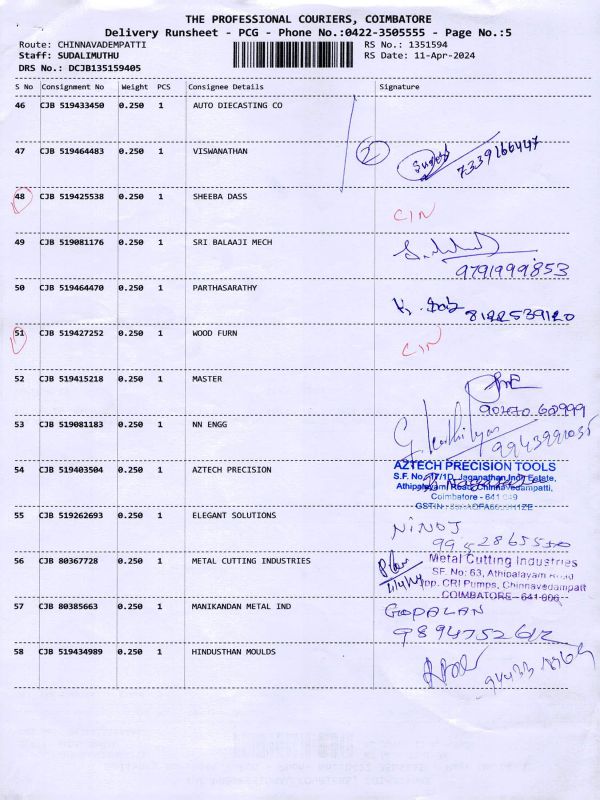 THE PROFESSIONAL COURIERS, COIMBATORE
Delivery Runsheet - PCG - Phone No.:0422-3505555 - Page No.:5
Route: CHINNAVADEMPATTI RS No.: 1351594
Staff: SUDALIMUTHU RS Date: 11-Apr-2024
DRS No.: DCJB135159405
S No Consignment No Weight PCS Consignee Details Signature
46 CJB 519433450 0.250 1 AUTO DIECASTING CO
47 CJB 519464483 0.250 1 VISWANATHAN 2 7339166447
48 CJB 519425538 0.250 1 SHEEBA DASS CIN
49 CJB 519081176 0.250 1 SRI BALAAJI MECH
9791999853
50 CJB 519464470 0.250 1 PARTHASARATHY 8122539120
51 CJB 519427252 0.250 1 WOOD FURN CIN
52 CJB 519415218 0.250 1 MASTER
53 CJB 519081183 0.250 1 NN ENGG
9943991035
54 CJB 519403504 0.250 1 AZTECH PRECISION
AZTECH PRECISION TOOLS
S.F. No. 17/1D, Jaganathan Indl Estate,
Athipalayam Road, Chinnavedampatti,
Coimbatore - 641 049
55 CJB 519262693 0.250 1 ELEGANT SOLUTIONS
NINOJ
56 CJB 80367728 0.250 1 METAL CUTTING INDUSTRIES
Metal Cutting Industries
SF. No: 63, Athipalayam Road
Opp. CRI Pumps, Chinnavedampatti
COIMBATORE - 641 006
57 CJB 80385663 0.250 1 MANIKANDAN METAL IND
GOPALAN
58 CJB 519434989 0.250 1 HINDUSTHAN MOULDS